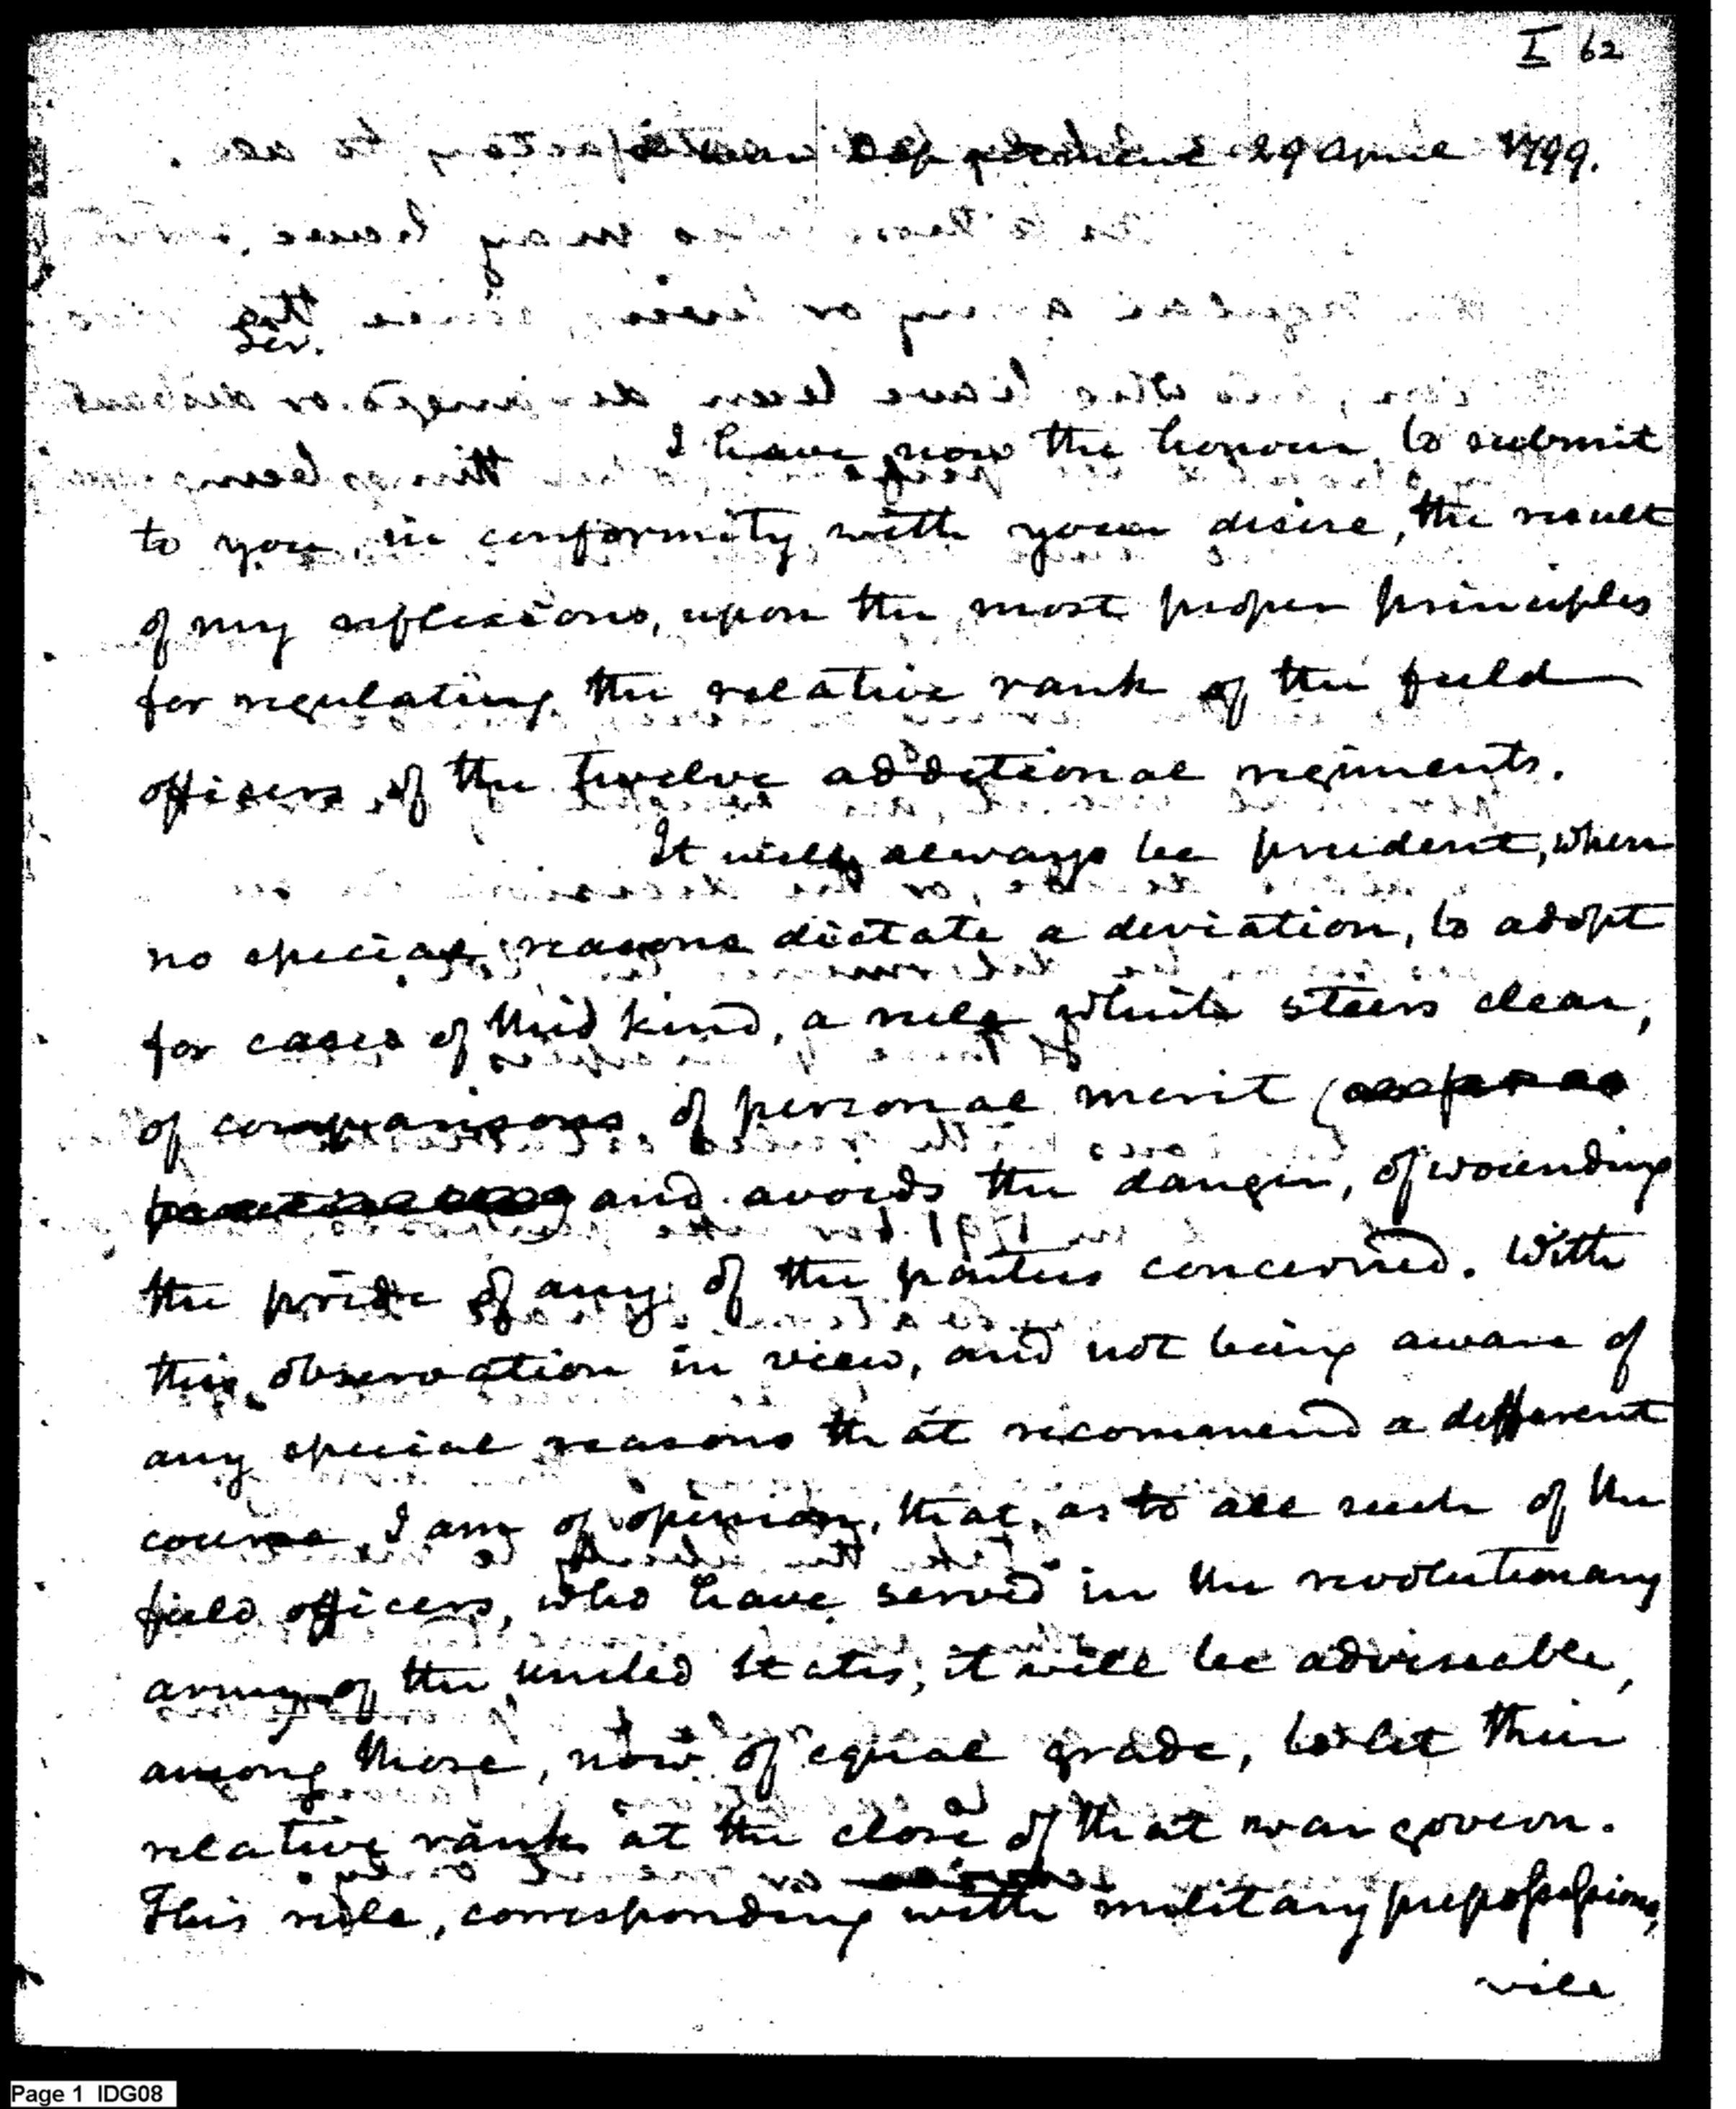 I 62
War Department 29 April 1799.
Sir.
I have now the honour, to submit
to you, in conformity with your desire, the result
of my reflexions, upon the most proper principles
for regulating the relative rank of the field
officers of the twelve additional regiments.
It will always be prudent, when
no special reasons dictate a deviation, to adopt
for cases of this kind, a rule which steers clear,
of comparisons of personal merit
and avoids the danger, of wounding
the pride of any of the parties concerned. With
this observation in view, and not being aware of
any special reasons that recommend a different
course, I am of opinion, that, as to all such of the
field officers, who have served in the revolutionary
army of the United States; it will be adviseable,
among those, now of equal grade, to let their
relative rank at the close of that war govern.
This rule, corresponding with military prepossessions,
will
Page 1 IDG08